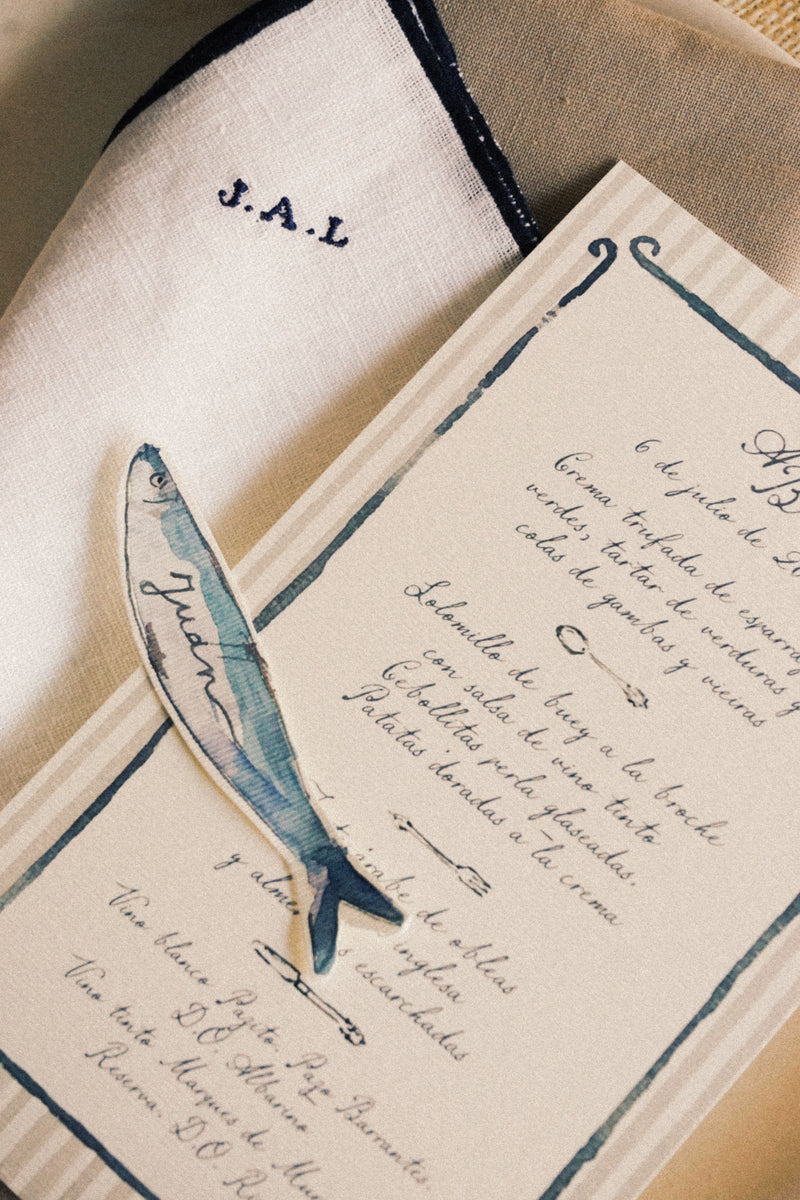 J.A.L
Juan
AB
6 de julio de 20
Crema trufada de esparra
verdes, tartar de verduras y
colas de gambas y vieiras
Solomillo de buey a la broche
con salsa de vino tinto
Cebollitas perla glaseadas.
Patatas doradas a la crema
de obleas
inglesa
y alme s escarchadas
Vino blanco Pazito. Pazo Barrantes.
D.O. Albarino
Vino tinto Marques de Mur
Reserva. D.O. Ri